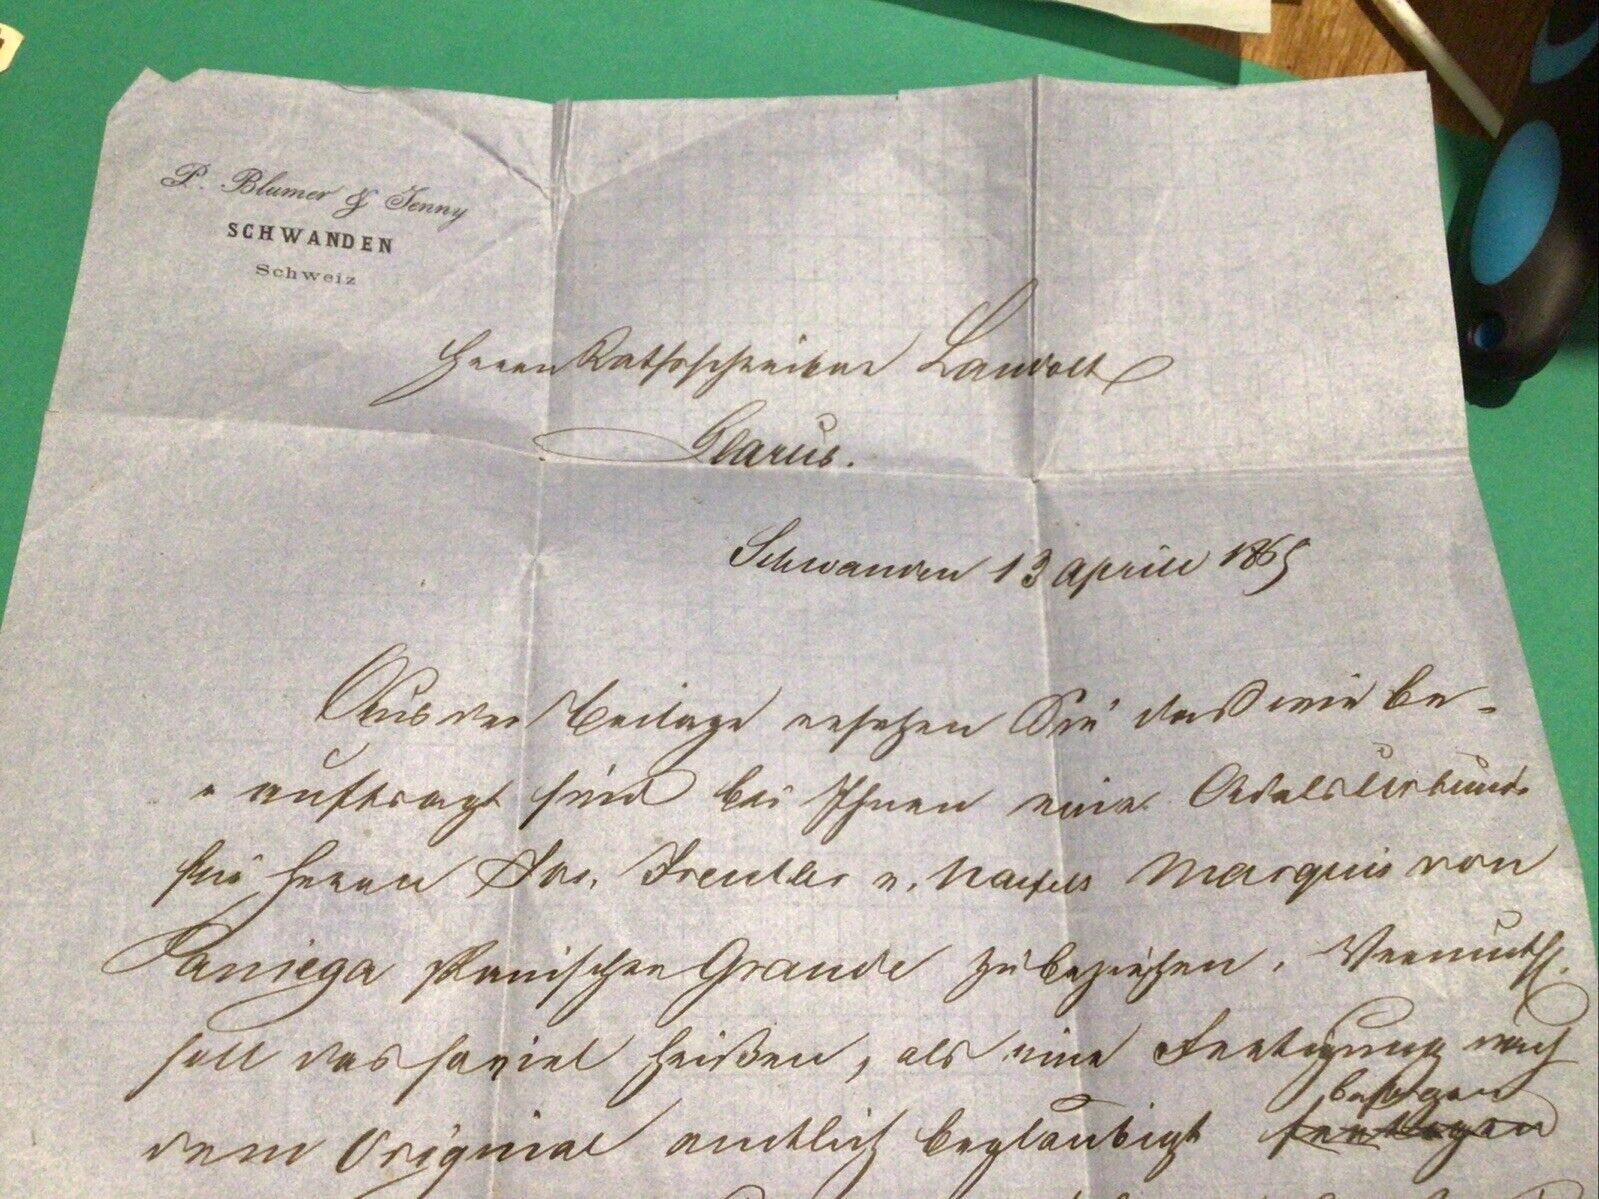 P. Blumer & Jenny
SCHWANDEN
Schweiz
Herrn Rathsschreiber Landolt
Glarus.
Schwanden 13 April 1865
Aus der Beilage ersehen Sie daß wir be-
auftragt sind bei Ihnen eine Adelsurkunde
für Herrn Freuller v. Naefels Marquis von
Paniega spanischen Grande zu beziehen. Vermuthl.
soll das soviel heißen, als eine Fertigung nach
besorgen
dem Original amtlich beglaubigt fertigen